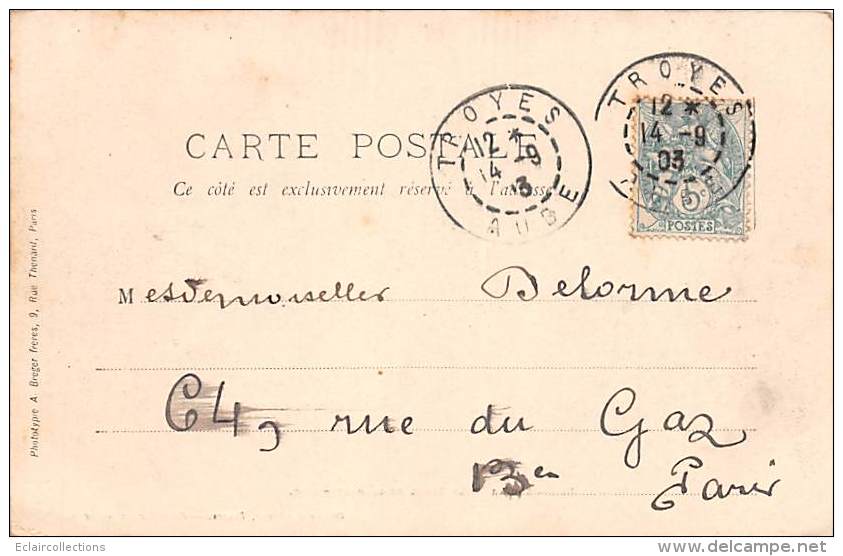 TROYES
12 *
14 -9
03
AUBE
TROYES
12 *
14 -9
03
AUBE
5c
POSTES
CARTE POSTALE
Ce côté est exclusivement réservé à l'adresse
Mesdemoiselles Delorme
64, rue du Gaz
13en Paris
Phototypie A. Breger frères, 9, Rue Thenard, Paris
Eclaircollections
www.delcampe.net